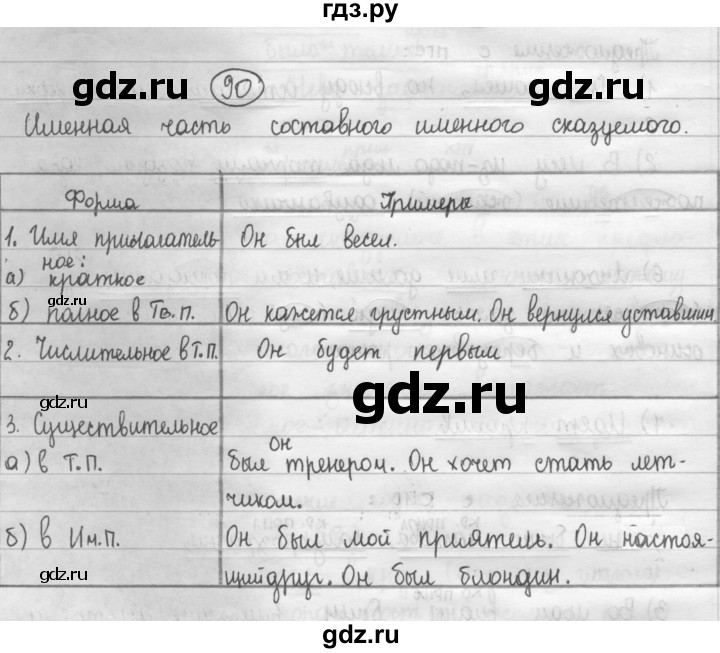 гдз.ру
gdz.ru
90
gdz.ru
Именная часть составного именного сказуемого.
Форма
Примеры
1. Имя прилагатель
ное:
Он был весел.
а) краткое
gdz.ru
б) полное в Тв.п.
Он кажется грустным. Он вернулся уставшим.
2. Числительное в Т.п.
Он будет первым
gdz.ru
3. Существительное
а) в Т.П.
Он
был тренером. Он хочет стать лет-
чиком.
б) в Им.П.
Он был мой приятель. Он настоя-
щий друг. Он был блондин.
gdz.ru
gdz.ru
gdz.ru